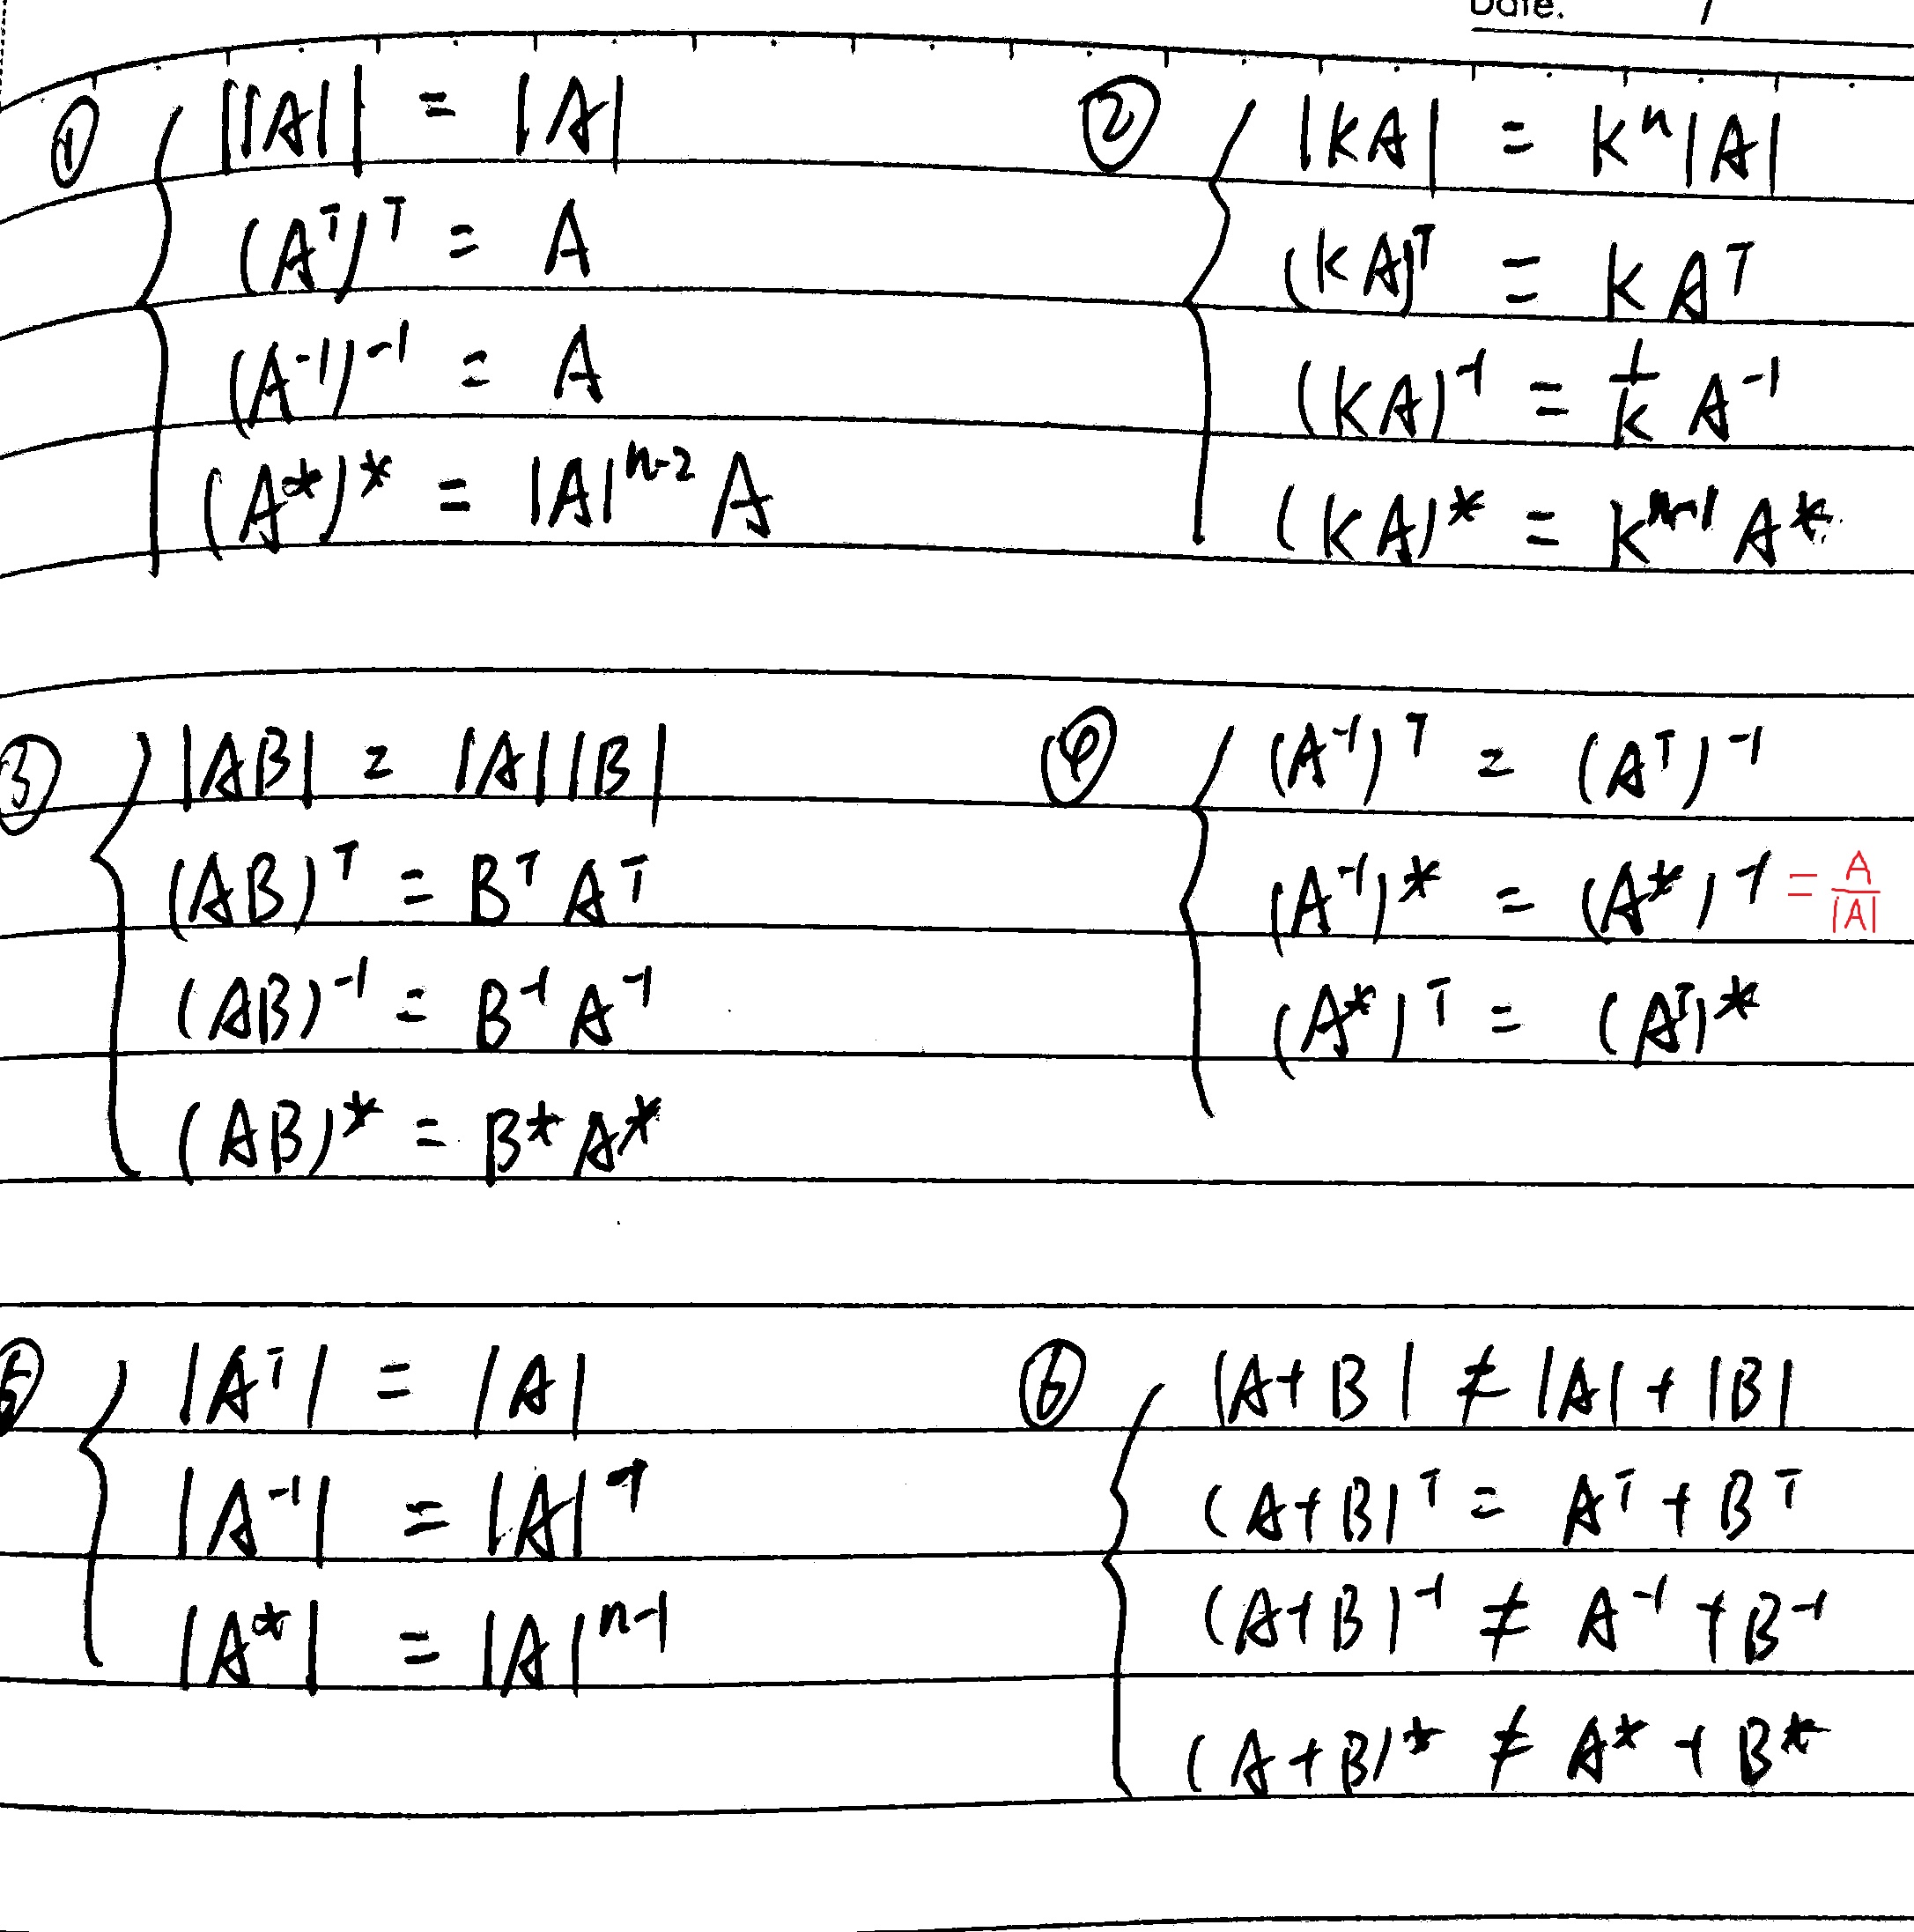 Date. /
① ||A|| = |A|
(Aᵀ)ᵀ = A
(A⁻¹)⁻¹ = A
(A*)* = |A|ⁿ⁻² A
② |KA| = Kⁿ|A|
(KA)ᵀ = KAᵀ
(KA)⁻¹ = 1/K A⁻¹
(KA)* = Kⁿ⁻¹ A*
③ |AB| = |A||B|
(AB)ᵀ = Bᵀ Aᵀ
(AB)⁻¹ = B⁻¹ A⁻¹
(AB)* = B* A*
④ (A⁻¹)ᵀ = (Aᵀ)⁻¹
(A⁻¹)* = (A*)⁻¹ = A/|A|
(A*)ᵀ = (Aᵀ)*
⑤ |Aᵀ| = |A|
|A⁻¹| = |A|⁻¹
|A*| = |A|ⁿ⁻¹
⑥ |A+B| ≠ |A| + |B|
(A+B)ᵀ = Aᵀ + Bᵀ
(A+B)⁻¹ ≠ A⁻¹ + B⁻¹
(A+B)* ≠ A* + B*